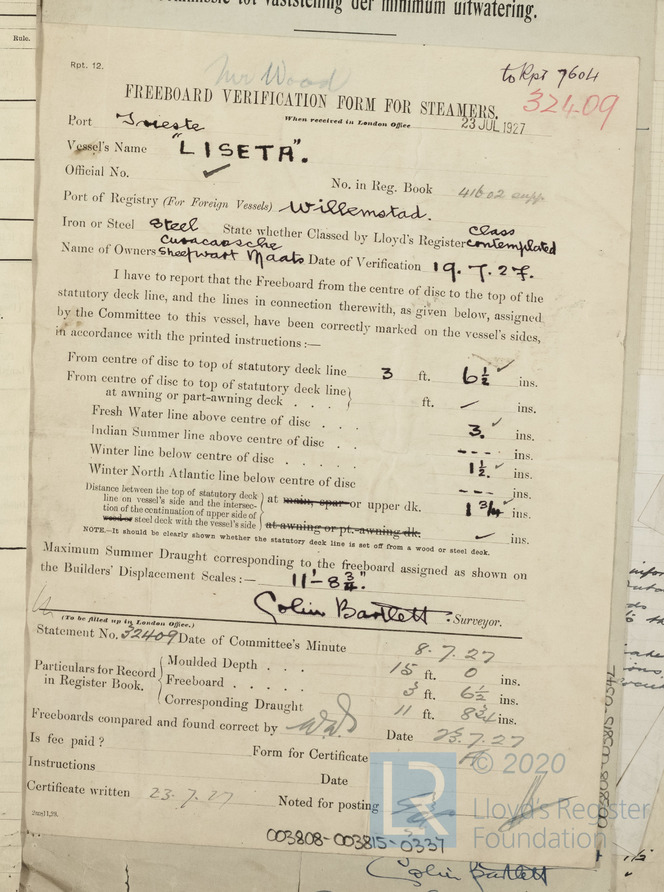 Commissie tot vaststelling der minimum uitwatering.
Rule.
Rpt. 12.
Mr Wood
to Rpt 7604
FREEBOARD VERIFICATION FORM FOR STEAMERS.
32409
Port Trieste
When received in London Office 23 JUL 1927
Vessel's Name "LISETA".
Official No. ✓
No. in Reg. Book 41602 supp
Port of Registry (For Foreign Vessels) Willemstad.
Iron or Steel Steel State whether Classed by Lloyd's Register Class contemplated
Name of Owners Curacaosche Sheepvart Maats Date of Verification 19.7.27.
I have to report that the Freeboard from the centre of disc to the top of the
statutory deck line, and the lines in connection therewith, as given below, assigned
by the Committee to this vessel, have been correctly marked on the vessel's sides,
in accordance with the printed instructions :—
From centre of disc to top of statutory deck line 3 ft. 6½ ins.
From centre of disc to top of statutory deck line
at awning or part-awning deck . . . ft. ✓ ins.
Fresh Water line above centre of disc . . . 3. ins.
Indian Summer line above centre of disc . . --- ins.
Winter line below centre of disc . . . . . 1½. ins.
Winter North Atlantic line below centre of disc --- ins.
Distance between the top of statutory deck
line on vessel's side and the intersec-
tion of the continuation of upper side of
wood or steel deck with the vessel's side
at main, spar or upper dk. 1¾ ins.
at awning or pt.-awning dk. ✓ ins.
NOTE.—It should be clearly shown whether the statutory deck line is set off from a wood or steel deck.
Maximum Summer Draught corresponding to the freeboard assigned as shown on
the Builders' Displacement Scales :— 11'-8¾"
Colin Bartlett. Surveyor.
(To be filled up in London Office.)
Statement No. 32409 Date of Committee's Minute 8.7.27
Particulars for Record in Register Book.
Moulded Depth . . . 15 ft. 0 ins.
Freeboard . . . . . 3 ft. 6½ ins.
Corresponding Draught 11 ft. 8¾ ins.
Freeboards compared and found correct by
Date 23.7.27
Is fee paid ?
Form for Certificate A
Instructions
Date
Certificate written 23.7.27
Noted for posting
003808-003815-0337
© 2020
Lloyd's Register
Foundation
LR
003808-003815-0342
Colin Bartlett